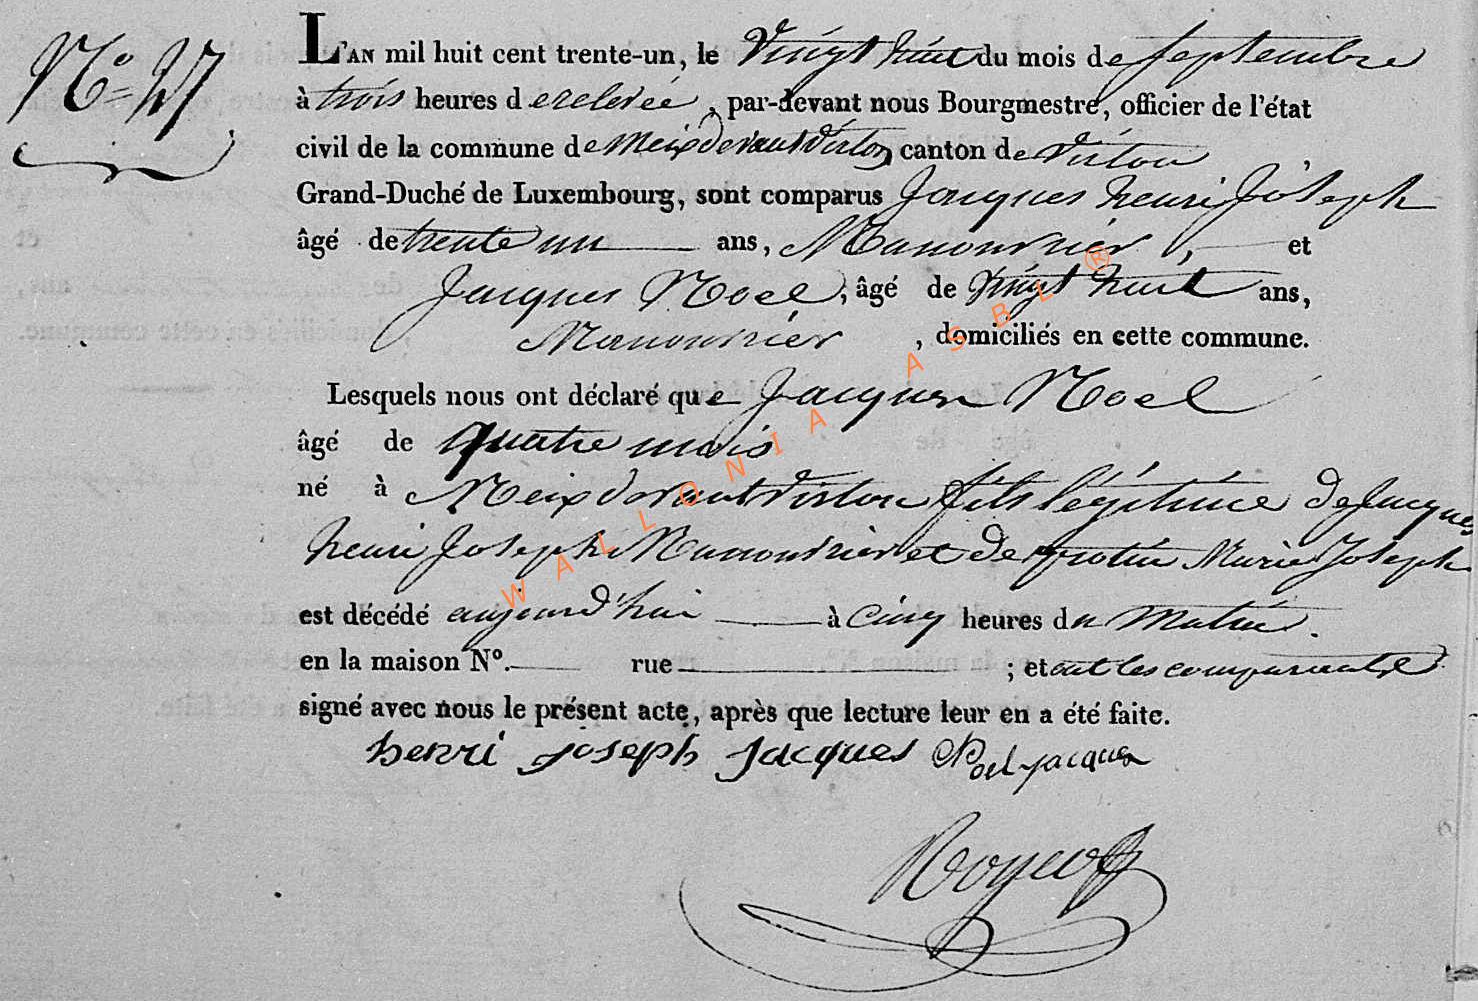 N° 27
L'AN mil huit cent trente-un, le Vingt huit du mois de septembre
à trois heures de relevée, par-devant nous Bourgmestre, officier de l'état
civil de la commune de Meix devant Virton canton de Virton
Grand-Duché de Luxembourg, sont comparus Jacques henri Joseph
âgé de trente un ans, Manouvrier, et
Jacques Noel, âgé de vingt huit ans,
Manouvrier, domiciliés en cette commune.
Lesquels nous ont déclaré que Jacques Noel
âgé de quatre mois
né à Meix devant Virton fils légitime de Jacques
henri Joseph Manouvrier et de Marie Joseph
est décédé aujourd'hui à Cinq heures du Matin.
en la maison N°. rue ; et ont les comparants
signé avec nous le présent acte, après que lecture leur en a été faite.
henri joseph Jacques Noel jacques
WALLONIA ASBL ®